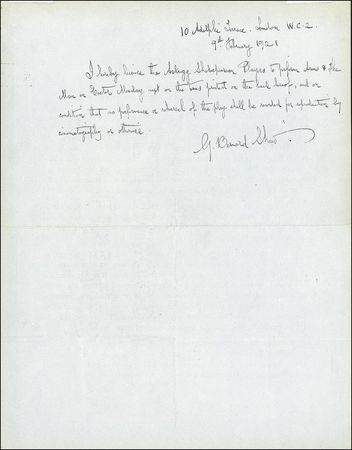 10 Adelphi Terrace. London W.C.2.
9th February 1921
I hereby licence the Shakespearean Players to perform Arms & the
Man on Easter Monday next on the terms printed on the back hereof, and on
condition that no performance or rehearsal of the play shall be recorded for reproduction by
cinematography or otherwise.
G. Bernard Shaw